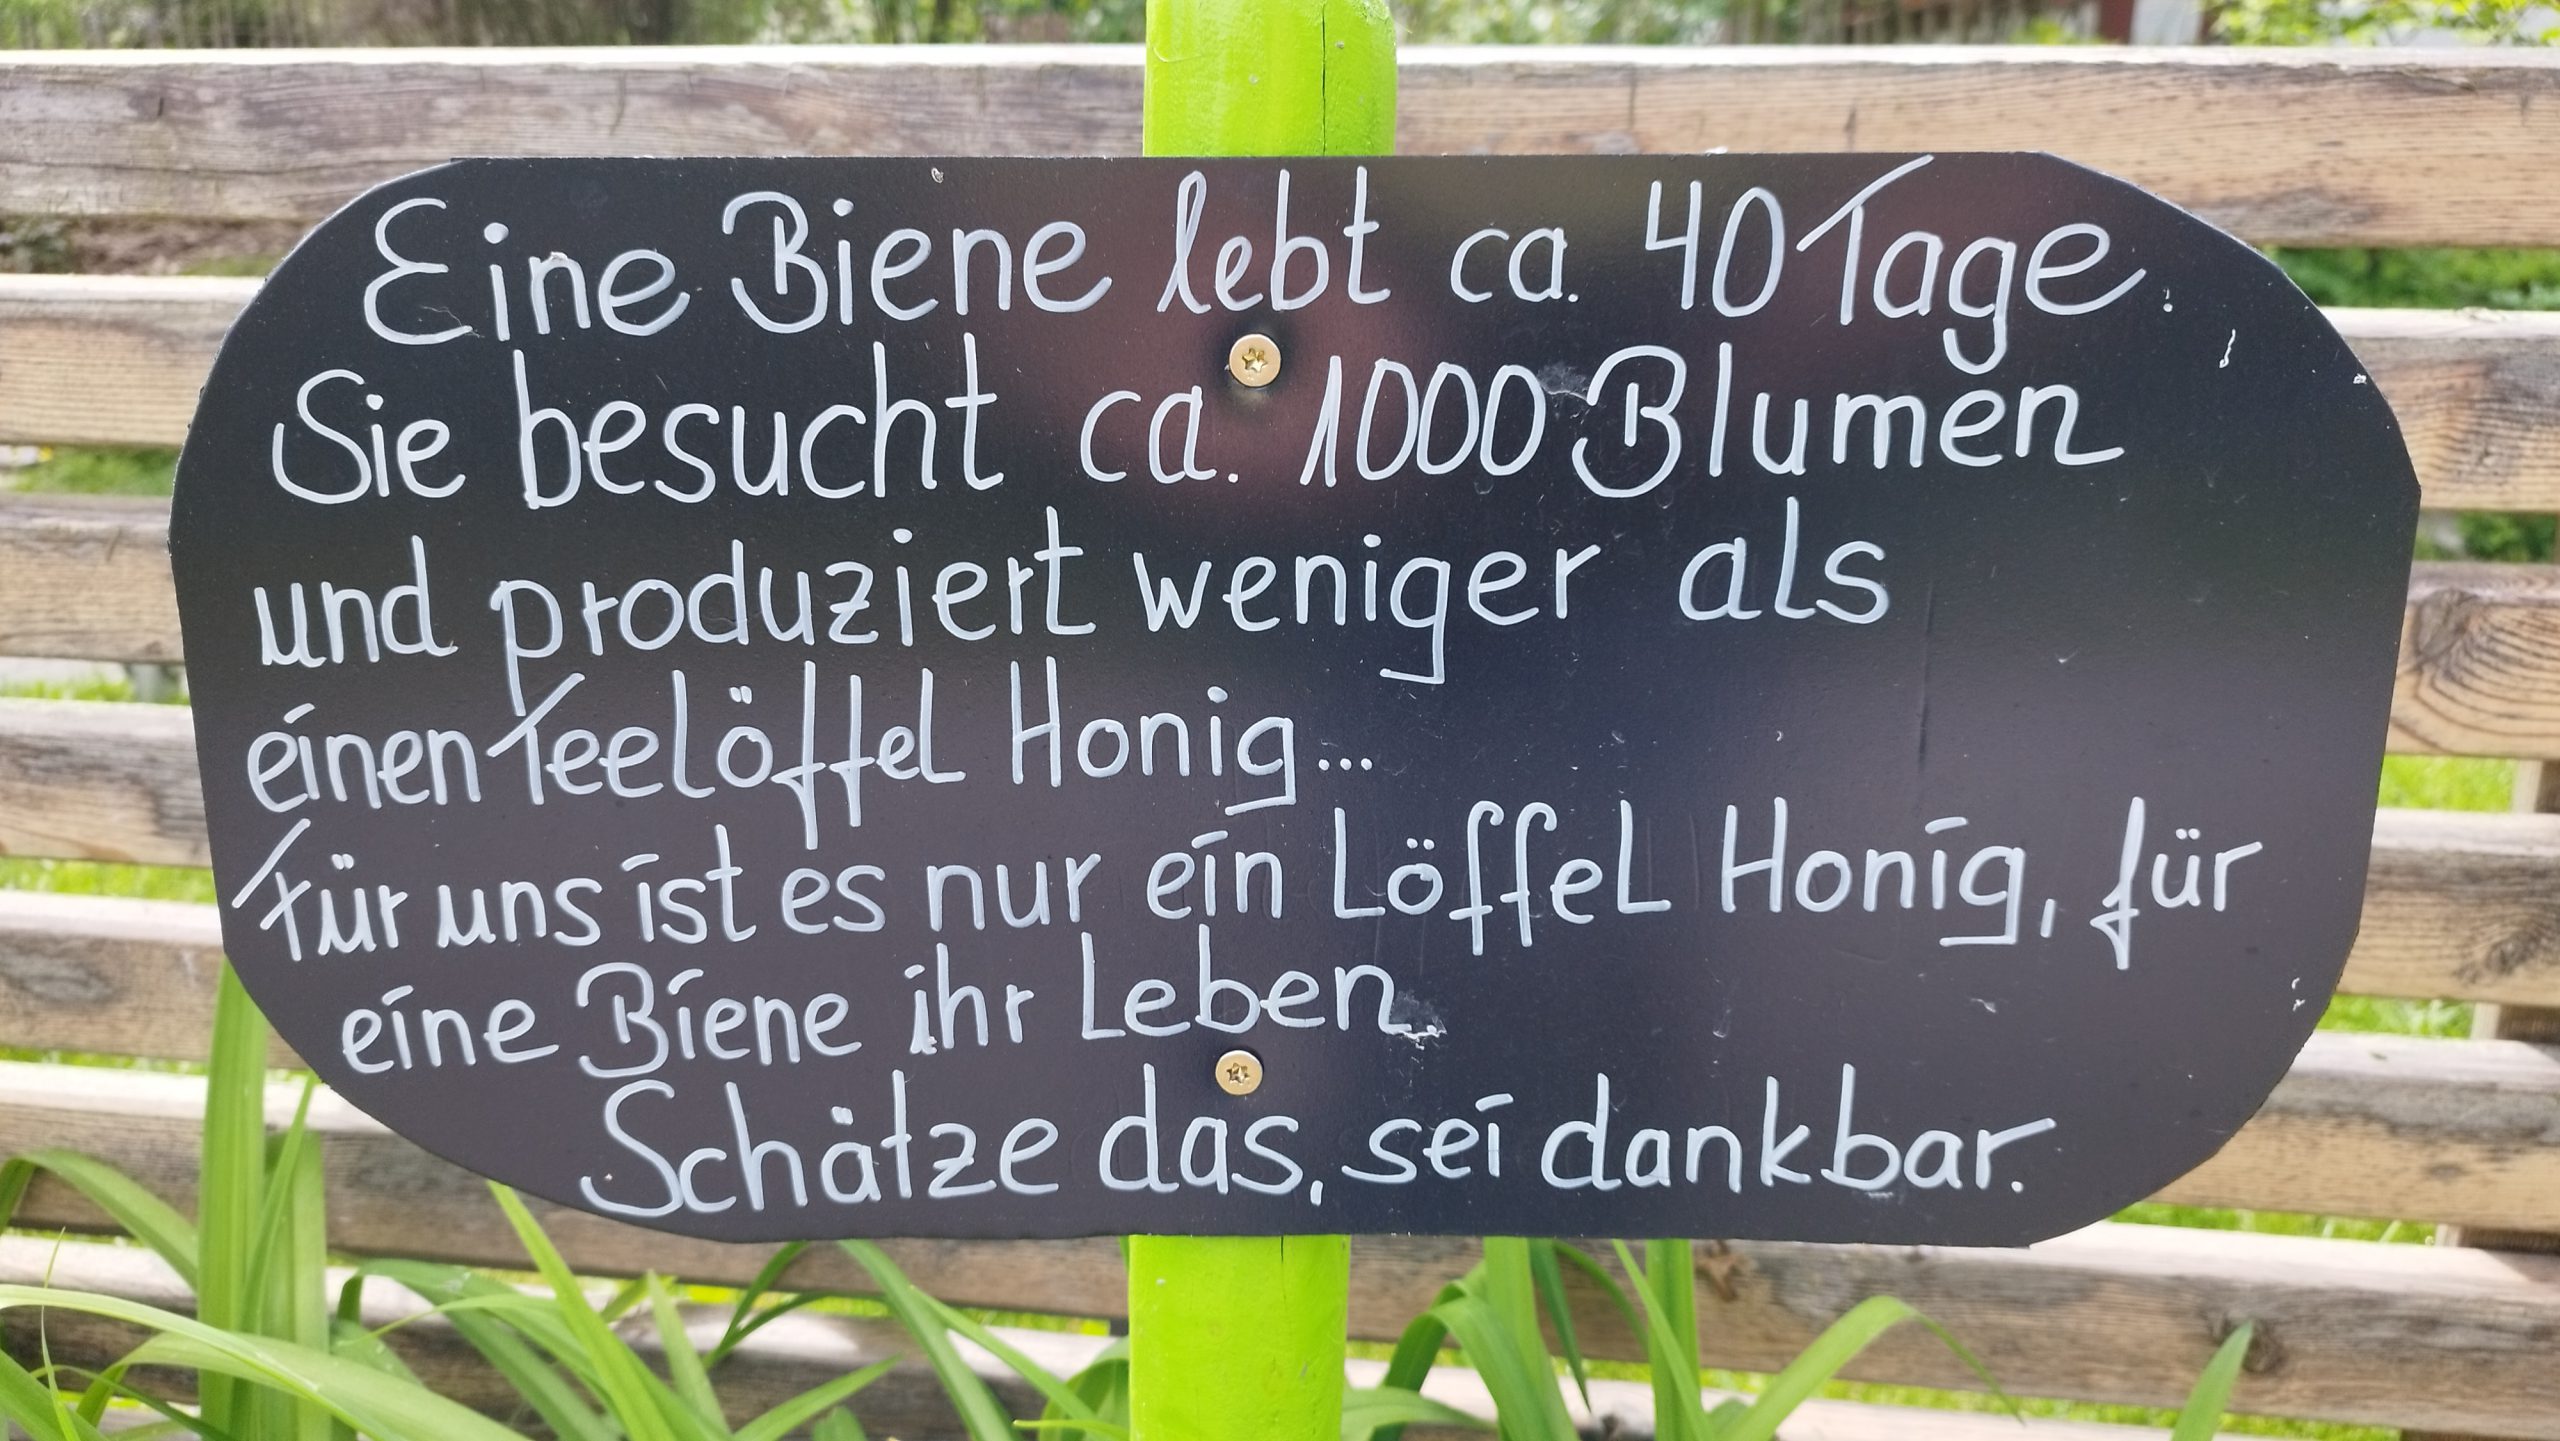 Eine Biene lebt ca. 40 Tage.
Sie besucht ca. 1000 Blumen
und produziert weniger als
einen Teelöffel Honig...
Für uns ist es nur ein Löffel Honig, für
eine Biene ihr Leben.
Schätze das, sei dankbar.